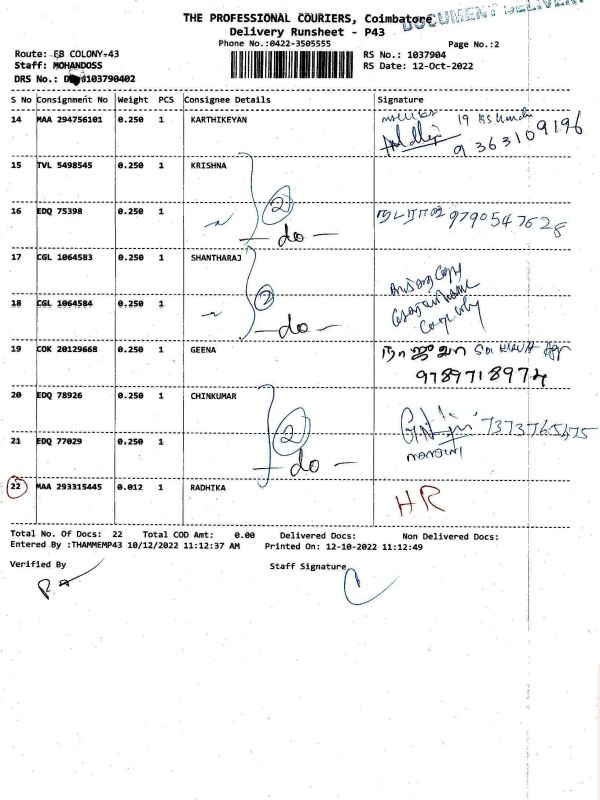 DOCUMENT DELIVER
THE PROFESSIONAL COURIERS, Coimbatore
Delivery Runsheet - P43
Phone No.:0422-3505555
Page No.:2
Route: EB COLONY-43
RS No.: 1037904
Staff: MOHANDOSS
RS Date: 12-Oct-2022
DRS No.: D 8103790402
S No Consignment No Weight PCS Consignee Details Signature
14 MAA 294756101 0.250 1 KARTHIKEYAN
9363109196
15 TVL 5498545 0.250 1 KRISHNA
2
16 EDQ 75398 0.250 1 நடராஜ 9790547628
do
17 CGL 1064583 0.250 1 SHANTHARAJ
18 CGL 1064584 0.250 1
2
do
19 COK 20129668 0.250 1 GEENA
9789718974
20 EDQ 78926 0.250 1 CHINKUMAR
7373765475
2
21 EDQ 77029 0.250 1
do
22 MAA 293315445 0.012 1 RADHIKA HR
Total No. Of Docs: 22 Total COD Amt: 0.00 Delivered Docs: Non Delivered Docs:
Entered By :THAMMEMP43 10/12/2022 11:12:37 AM Printed On: 12-10-2022 11:12:49
Verified By
Staff Signature